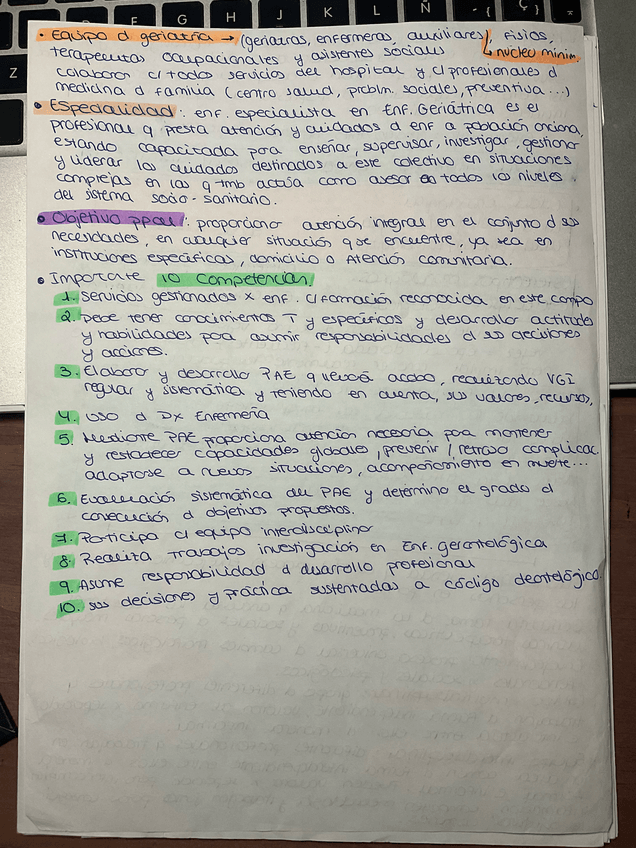 G H J K L Ñ
Z
• Equipo d geriatría → (geriatras, enfermeras, auxiliares) fisios,
↳ nucleo mínim.
terapeutas ocupacionales y asistentes sociales
colabora c/ todos servicios del hospital y c/ profesionales d
medicina d familia (centro salud, problm. sociales, preventiva...)
• Especialidad: enf. especialista en Enf. Geriátrica es el
profesional q presta atención y cuidados d enf a población anciana,
estando capacitada para enseñar, supervisar, investigar, gestionar
y liderar los cuidados destinados a este colectivo en situaciones
complejas en las q tmb actúa como asesor en todos los niveles
del sistema socio-sanitario.
• Objetivo ppal: proporcionar atención integral en el conjunto d sus
necesidades, en cualquier situación q se encuentre, ya sea en
instituciones específicas, domicilio o Atención comunitaria.
• Importante 10 competencias
1. Servicios gestionados x enf. c/ formación reconocida en este campo
2. Debe tener conocimientos T y específicos y desarrollar actitudes
y habilidades para asumir responsabilidades d sus decisiones
y acciones.
3. Elabora y desarrolla PAE q llevará acabo, realizando VGI
regular y sistemática y teniendo en cuenta, sus valores, recursos,
4. Uso d Dx Enfermería
5. Mediante PAE proporciona atención necesaria para mantener
y restablecer capacidades globales, prevenir / retrasar complicac.
adaptarse a nuevas situaciones, acompañamiento en muerte...
6. Evaluación sistemática del PAE y determina el grado d
consecución d objetivos propuestos.
7. Participa c/ equipo interdisciplinar
8. Realiza trabajos investigación en Enf. gerontológica
9. Asume responsabilidad d desarrollo profesional
10. sus decisiones y práctica sustentadas a código deontológico.